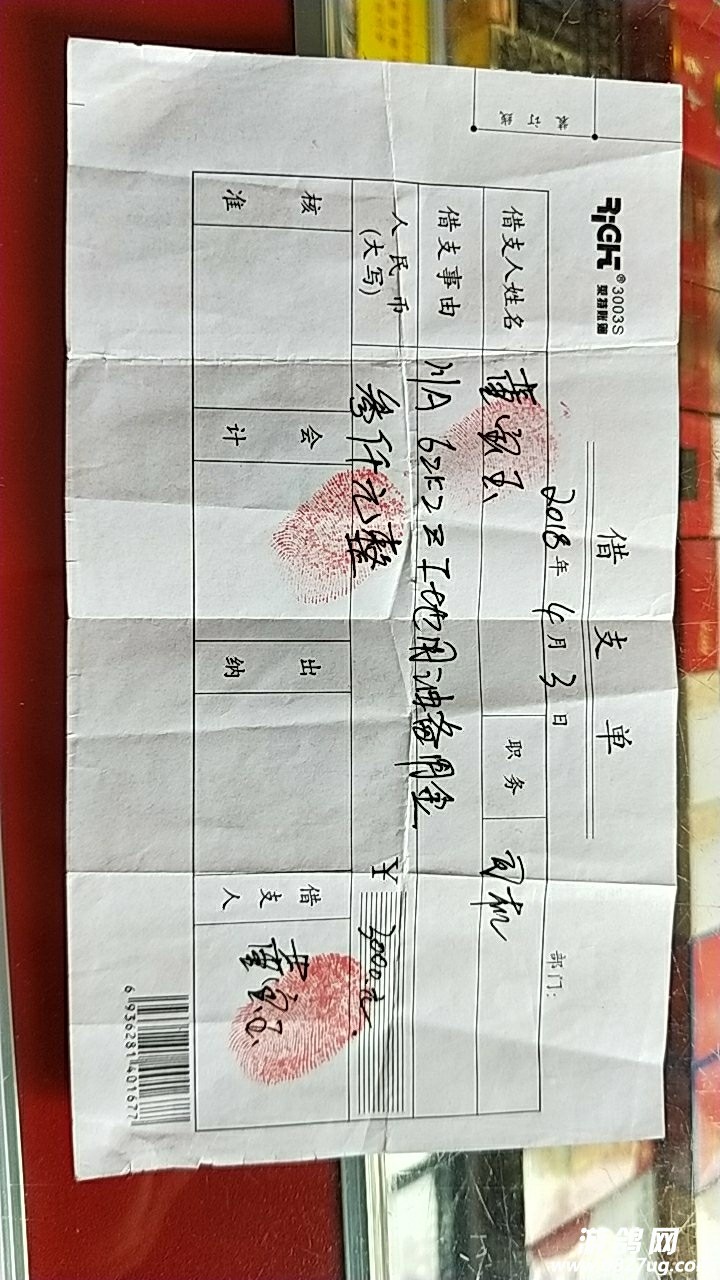 RiCH® 3003S
莱特账簿
装订线
借支单
2018年4月3日
部门:
借支人姓名
职务 司机
借支事由 川A 62622工地用油备用金
人民币(大写) 叁仟元整 ¥ 3000元
核准
会计
出纳
借支人
6 936281 401677